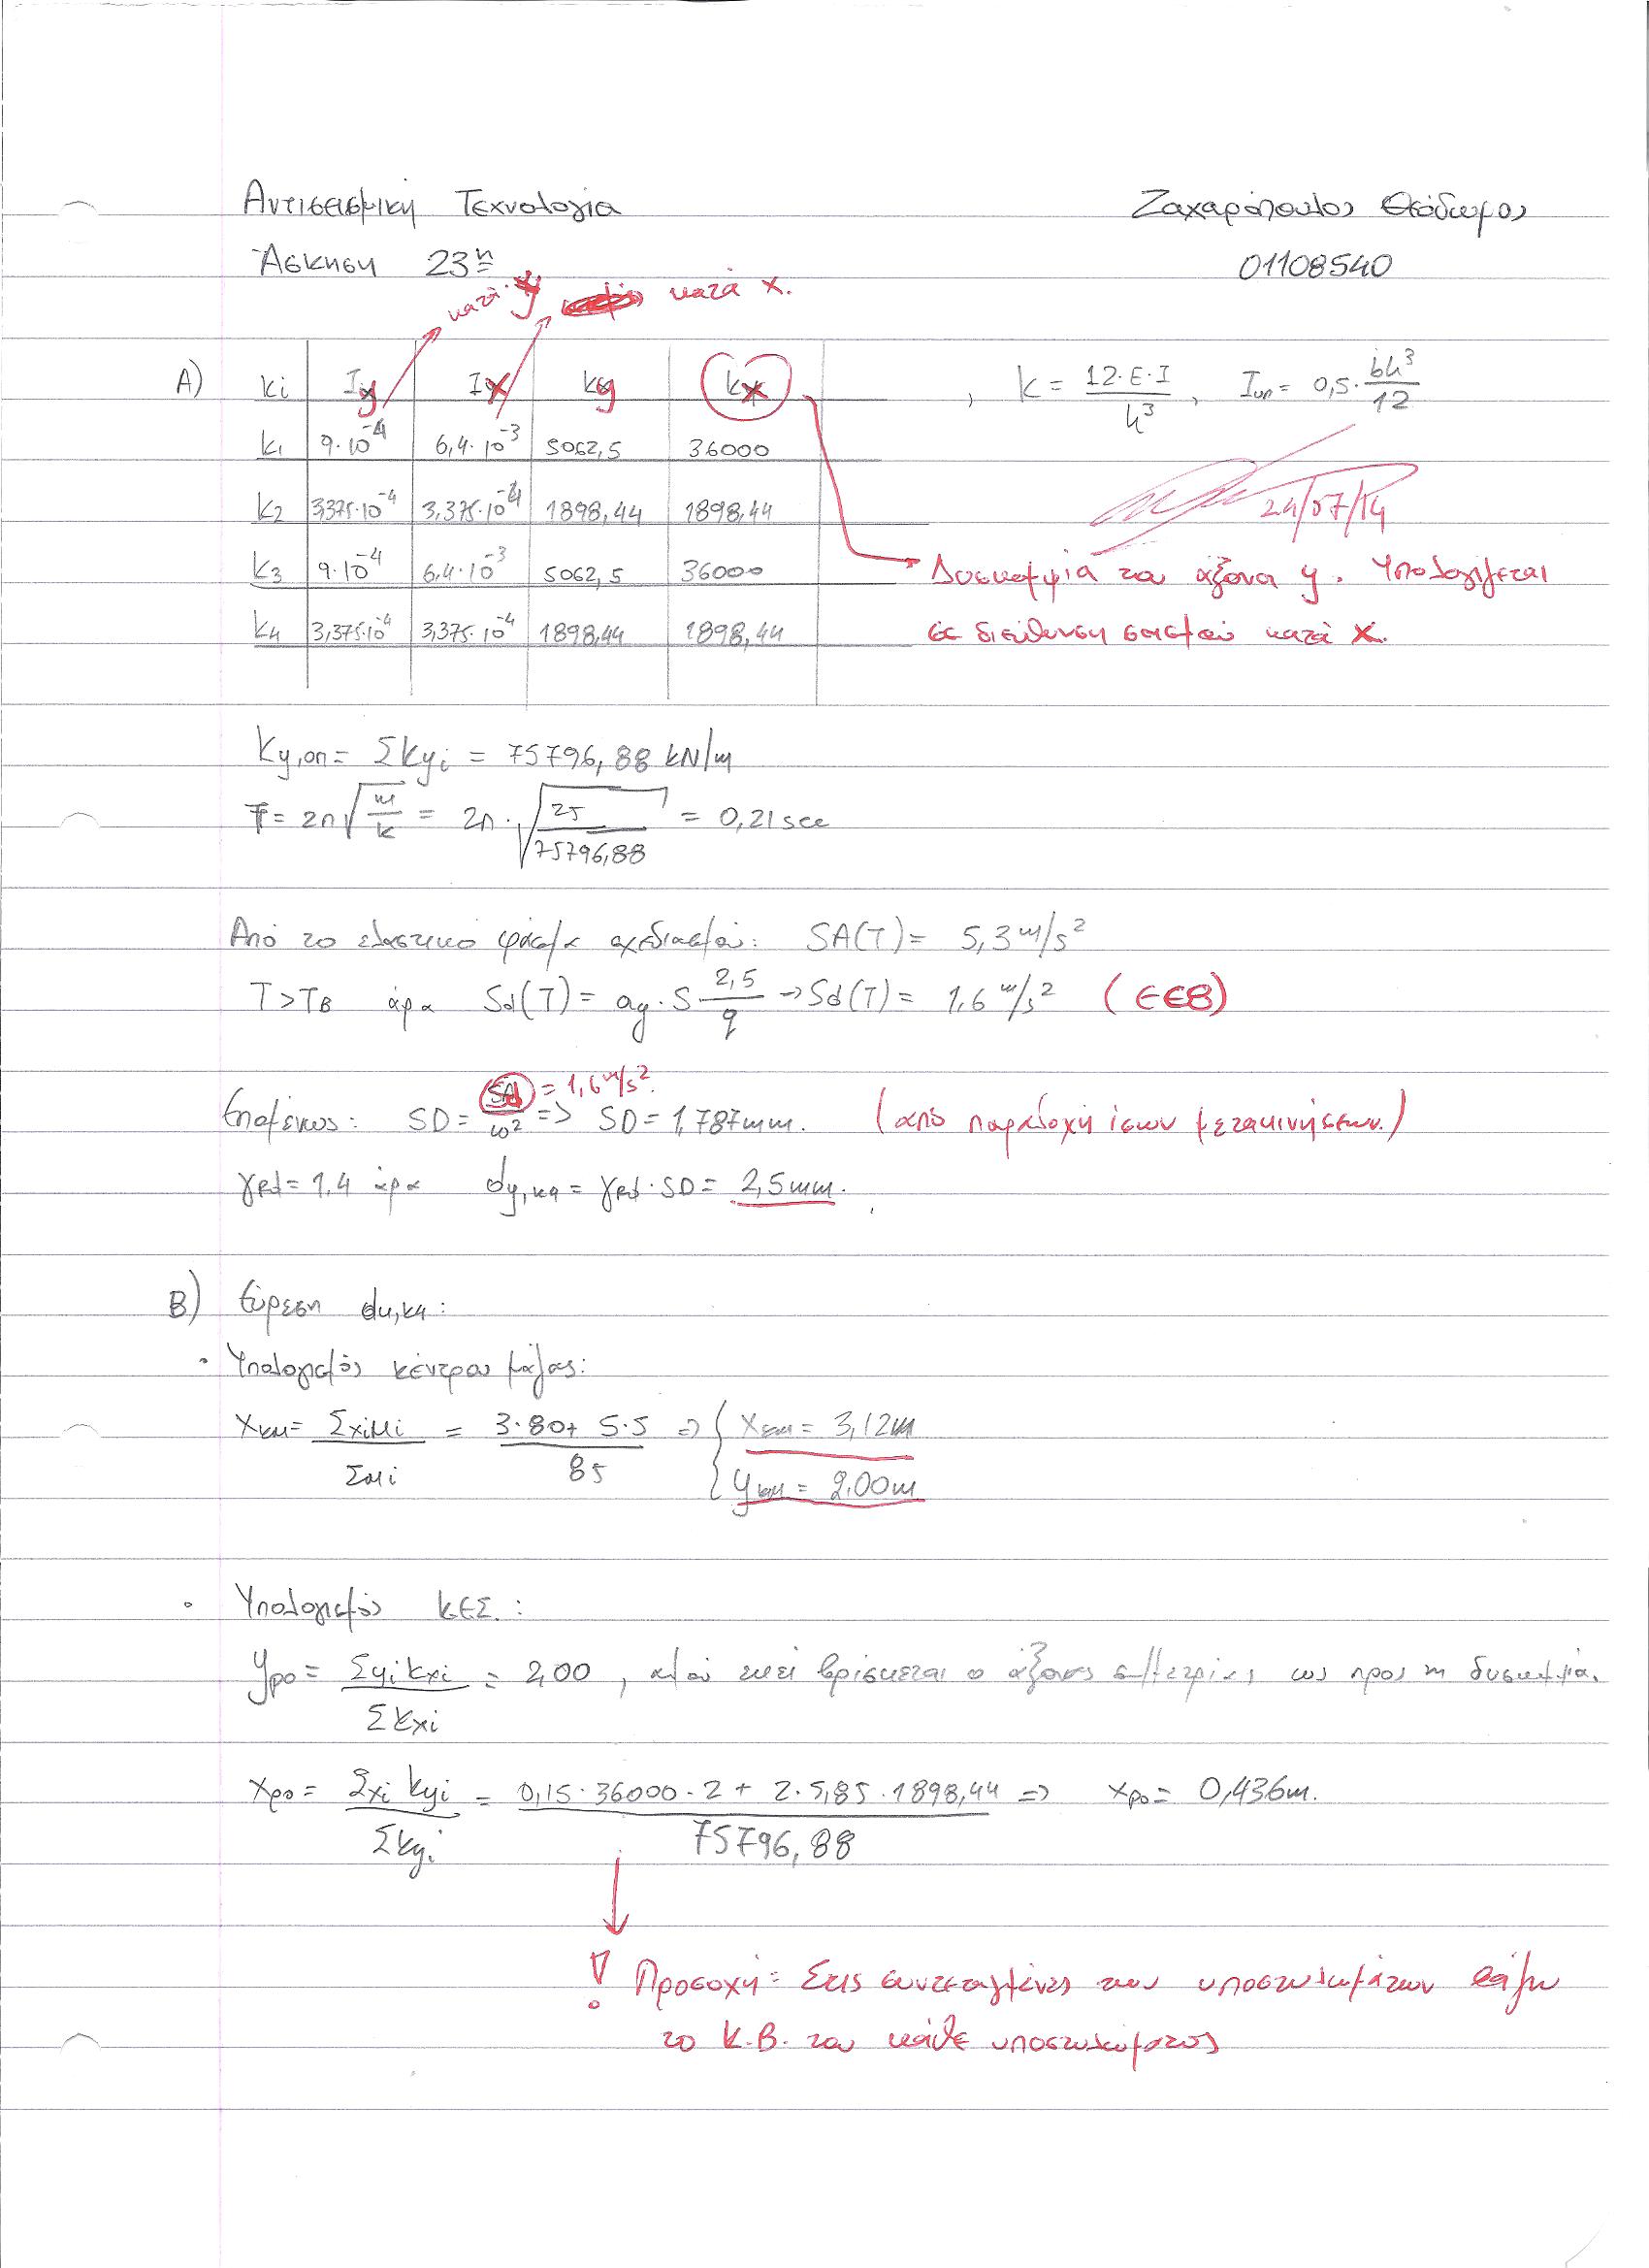 Αντισεισμική Τεχνολογία Ζαχαρόπουλος Θεόδωρος
Άσκηση 23η 01108540
κατά y κατά x.
A) Ki Iy Ix Ky Kx , K = 12·E·I / h³ , Iυπ = 0,5· bh³ / 12
K1 9·10⁻⁴ 6,4·10⁻³ 5062,5 36000
K2 3,375·10⁻⁴ 3,375·10⁻⁴ 1898,44 1898,44 24/07/14
K3 9·10⁻⁴ 6,4·10⁻³ 5062,5 36000 Δυσκαμψία του άξονα y. Υπολογίζεται
K4 3,375·10⁻⁴ 3,375·10⁻⁴ 1898,44 1898,44 σε διεύθυνση σεισμού κατά x.
Ky,ολ = Σkyi = 75796,88 kN/m
T = 2π√(m/k) = 2π·√(25/75796,88) = 0,21 sec
Από το ελαστικό φάσμα σχεδιασμού: SA(T) = 5,3 m/s²
T>TB άρα Sd(T) = ag·S· 2,5/q → Sd(T) = 1,6 m/s² (ΕΕΒ)
Επομένως: SD = Sd/ω² => SD = 1,787mm. (από παραδοχή ίσων μετακινήσεων.)
= 1,6 m/s².
γRd = 1.4 άρα dy,κ4 = γRd·SD = 2,5mm.
B) Εύρεση du,κ4:
· Υπολογισμός κέντρου μάζας:
Xκμ = ΣxiMi / ΣMi = (3·80 + 5·5) / 85 => { Xκμ = 3,12m
{ yκμ = 2,00m
· Υπολογισμός ΚΕΣ.:
yρο = ΣyiKxi / ΣKxi = 2,00 , αφού εκεί βρίσκεται ο άξονας συμμετρίας ως προς τη δυσκαμψία.
xρο = Σxi kyi / Σkyi = (0,15·36000·2 + 2·5,85·1898,44) / 75796,88 => xρο = 0,436m.
! Προσοχή: Στις συντεταγμένες των υποστυλωμάτων βάζω
το Κ.Β. του κάθε υποστυλώματος